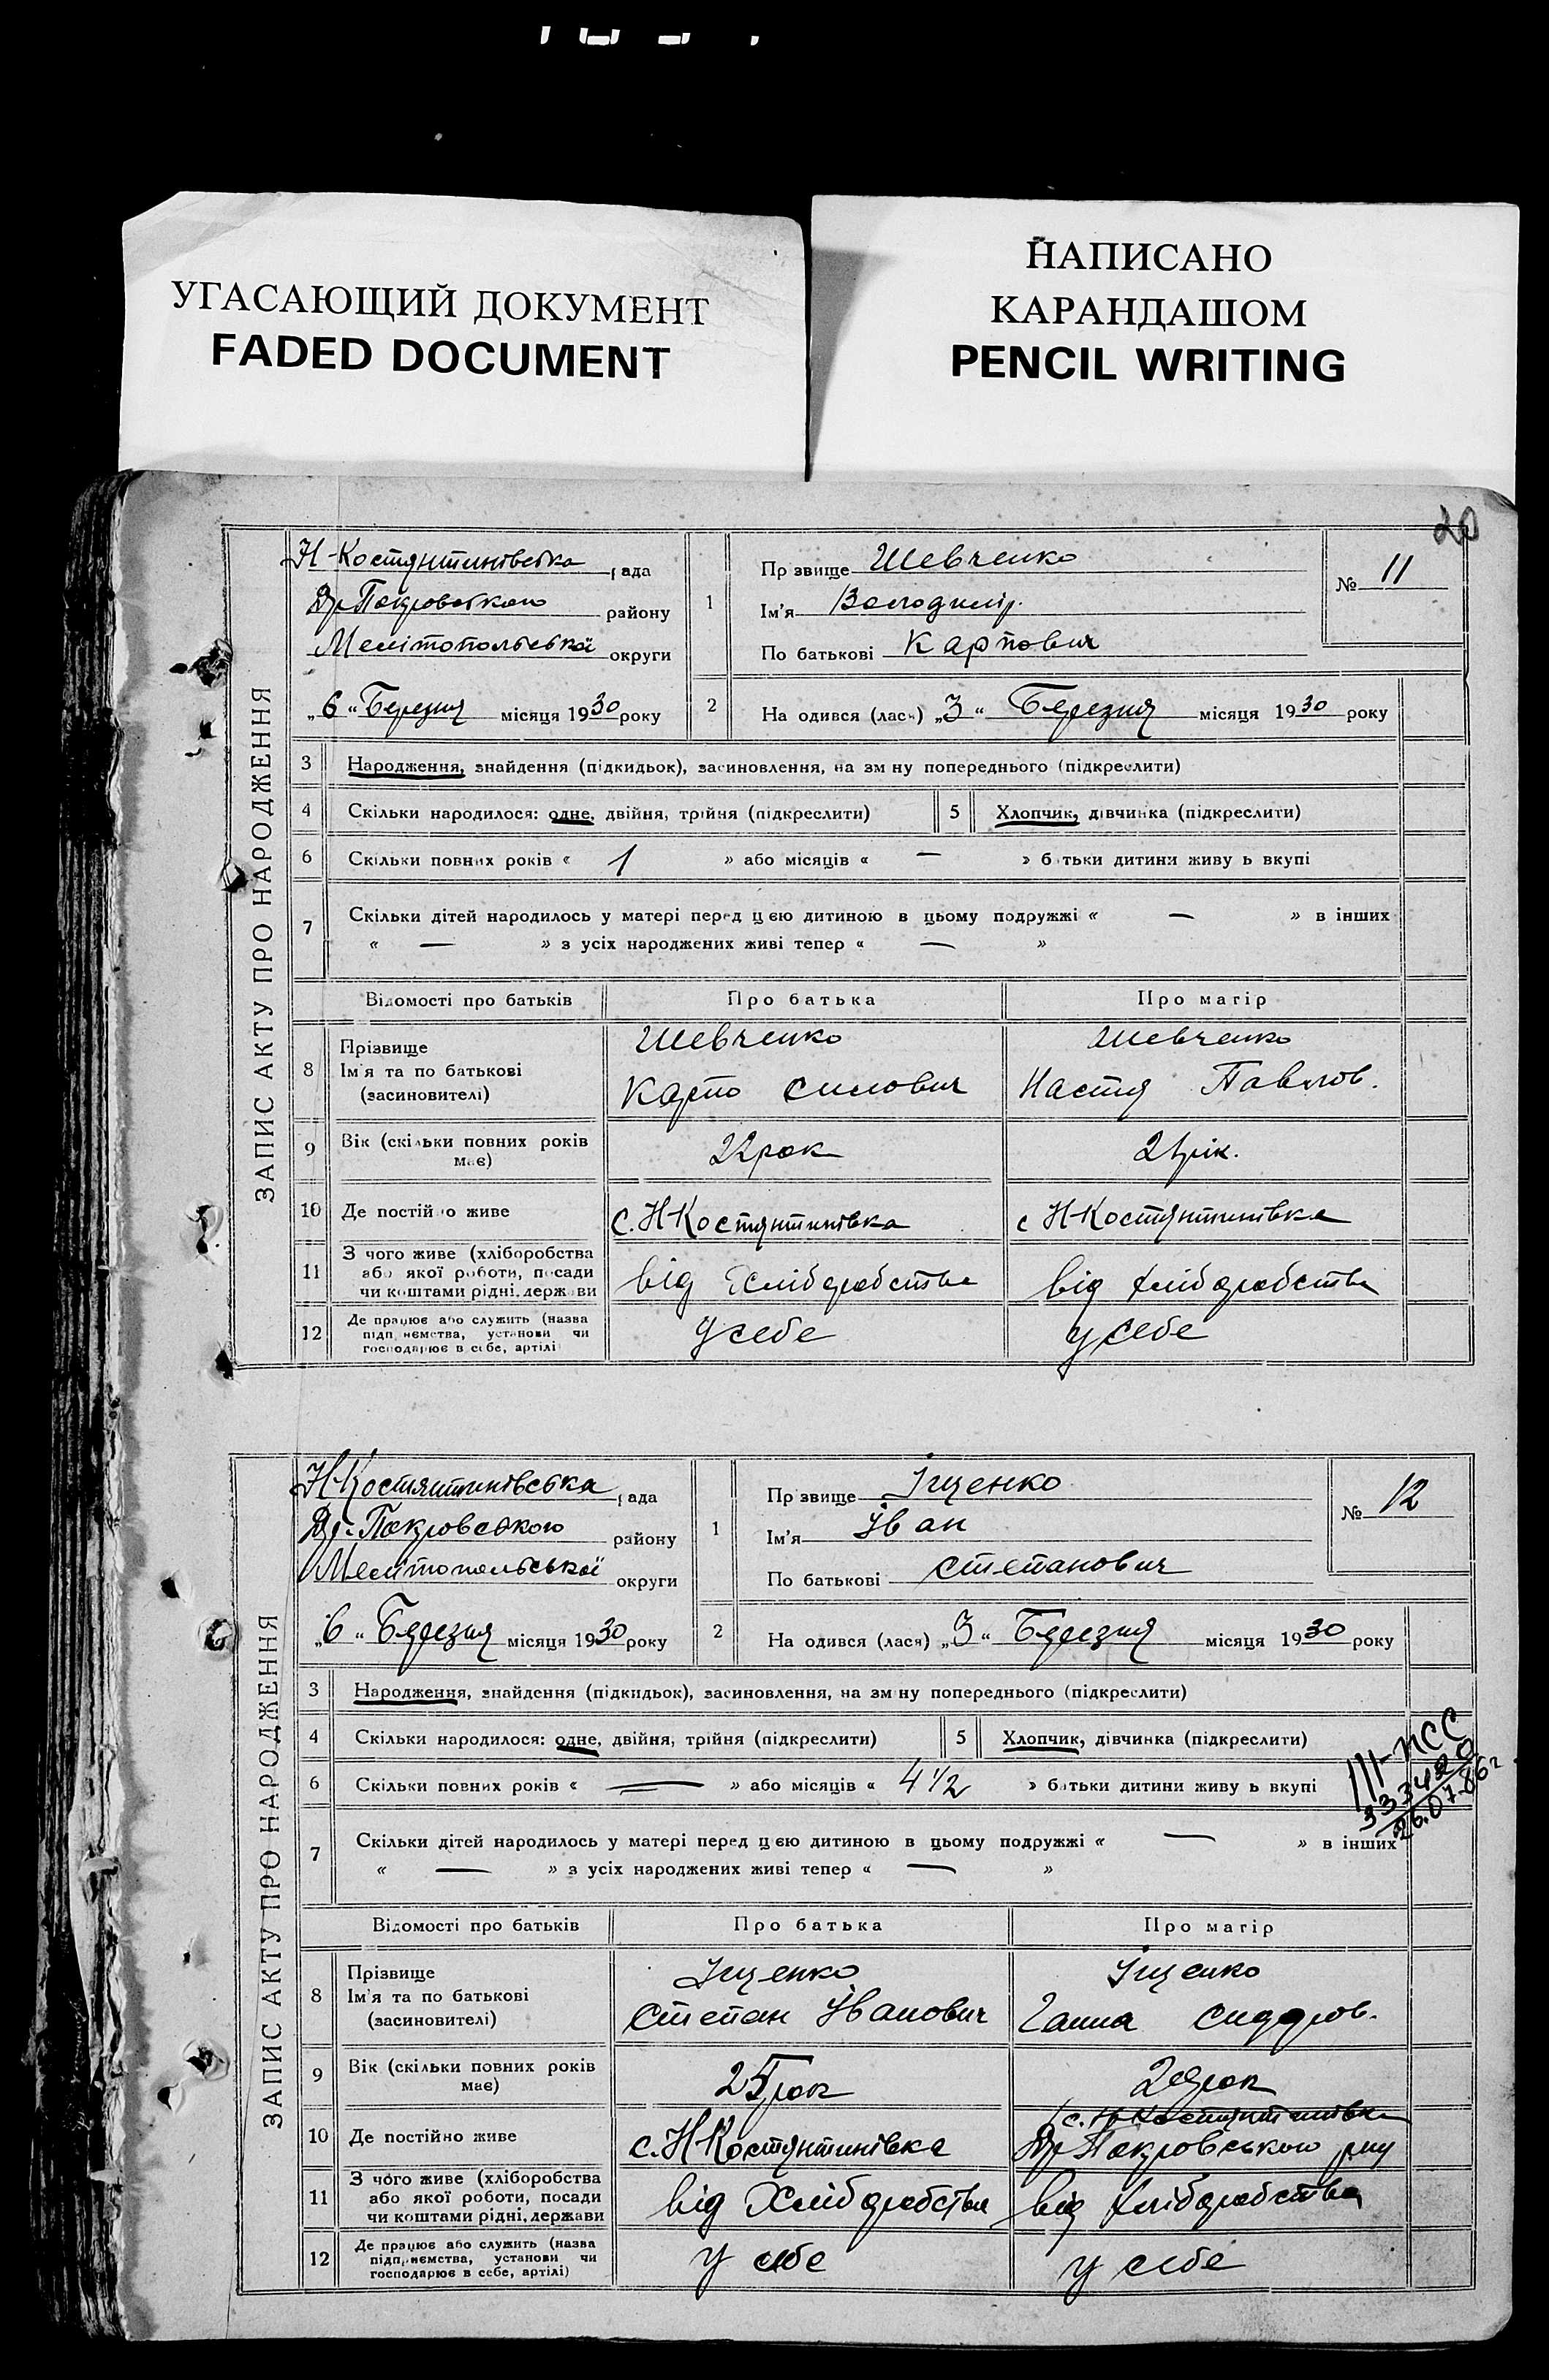 УГАСАЮЩИЙ ДОКУМЕНТ
FADED DOCUMENT
НАПИСАНО
КАРАНДАШОМ
PENCIL WRITING
20
ЗАПИС АКТУ ПРО НАРОДЖЕННЯ
Н-Костянтинівська рада
Др-Покровського району
Мелітопольської округи
„6“ Березня місяця 1930 року
1
Прізвище Шевченко
Ім'я Володимір.
По батькові Карпович
№ 11
2
На одився (лася) „3“ Березня місяця 1930 року
3 Народження, знайдення (підкидьок), засиновлення, на зм ну попереднього (підкреслити)
4 Скільки народилося: одне, двійня, трійня (підкреслити) 5 Хлопчик, дівчинка (підкреслити)
6 Скільки повних років « 1 » або місяців « — » б тьки дитини живу ь вкупі
7 Скільки дітей народилось у матері перед цею дитиною в цьому подружжі « — » в інших
« — » з усіх народжених живі тепер « — »
Відомості про батьків Про батька Про матір
8 Прізвище Шевченко Шевченко
Ім'я та по батькові Карпо Силович Настя Павлов.
(засиновителі)
9 Вік (скільки повних років має) 22 рок 21 рік.
10 Де постійно живе с. Н-Костянтинівка с Н-Костянтинівка
11 З чого живе (хліборобства
або якої роботи, посади від Хліборобства від хліборобства
чи коштами рідні, держави
12 Де працює або служить (назва
підприємства, установи чи у себе у себе
господарює в себе, артілі)
ЗАПИС АКТУ ПРО НАРОДЖЕННЯ
Н-Костянтинівська рада
Др-Покровського району
Мелітопольської округи
„6“ Березня місяця 1930 року
1
Пр звище Іщенко
Ім'я Іван
По батькові Степанович
№ 12
2
На одився (лася) „3“ Березня місяця 1930 року
3 Народження, знайдення (підкидьок), засиновлення, на зм ну попереднього (підкреслити)
4 Скільки народилося: одне, двійня, трійня (підкреслити) 5 Хлопчик, дівчинка (підкреслити)
6 Скільки повних років « — » або місяців « 4 1/2 » батьки дитини живу ь вкупі
III-ПСС
333420
26.07.86г
7 Скільки дітей народилось у матері перед цею дитиною в цьому подружжі « — » в інших
« — » з усіх народжених живі тепер « — »
Відомості про батьків Про батька Про матір
8 Прізвище Іщенко Іщенко
Ім'я та по батькові Степан Іванович Ганна Сидоров.
(засиновителі)
9 Вік (скільки повних років має) 25 рок 20 рок
10 Де постійно живе с. Н-Костянтинівка с. Н-Костянтинівка
Др Покровського рну
11 З чого живе (хліборобства
або якої роботи, посади від Хліборобства від хліборобства
чи коштами рідні, держави
12 Де працює або служить (назва
підприємства, установи чи у себе у себе
господарює в себе, артілі)